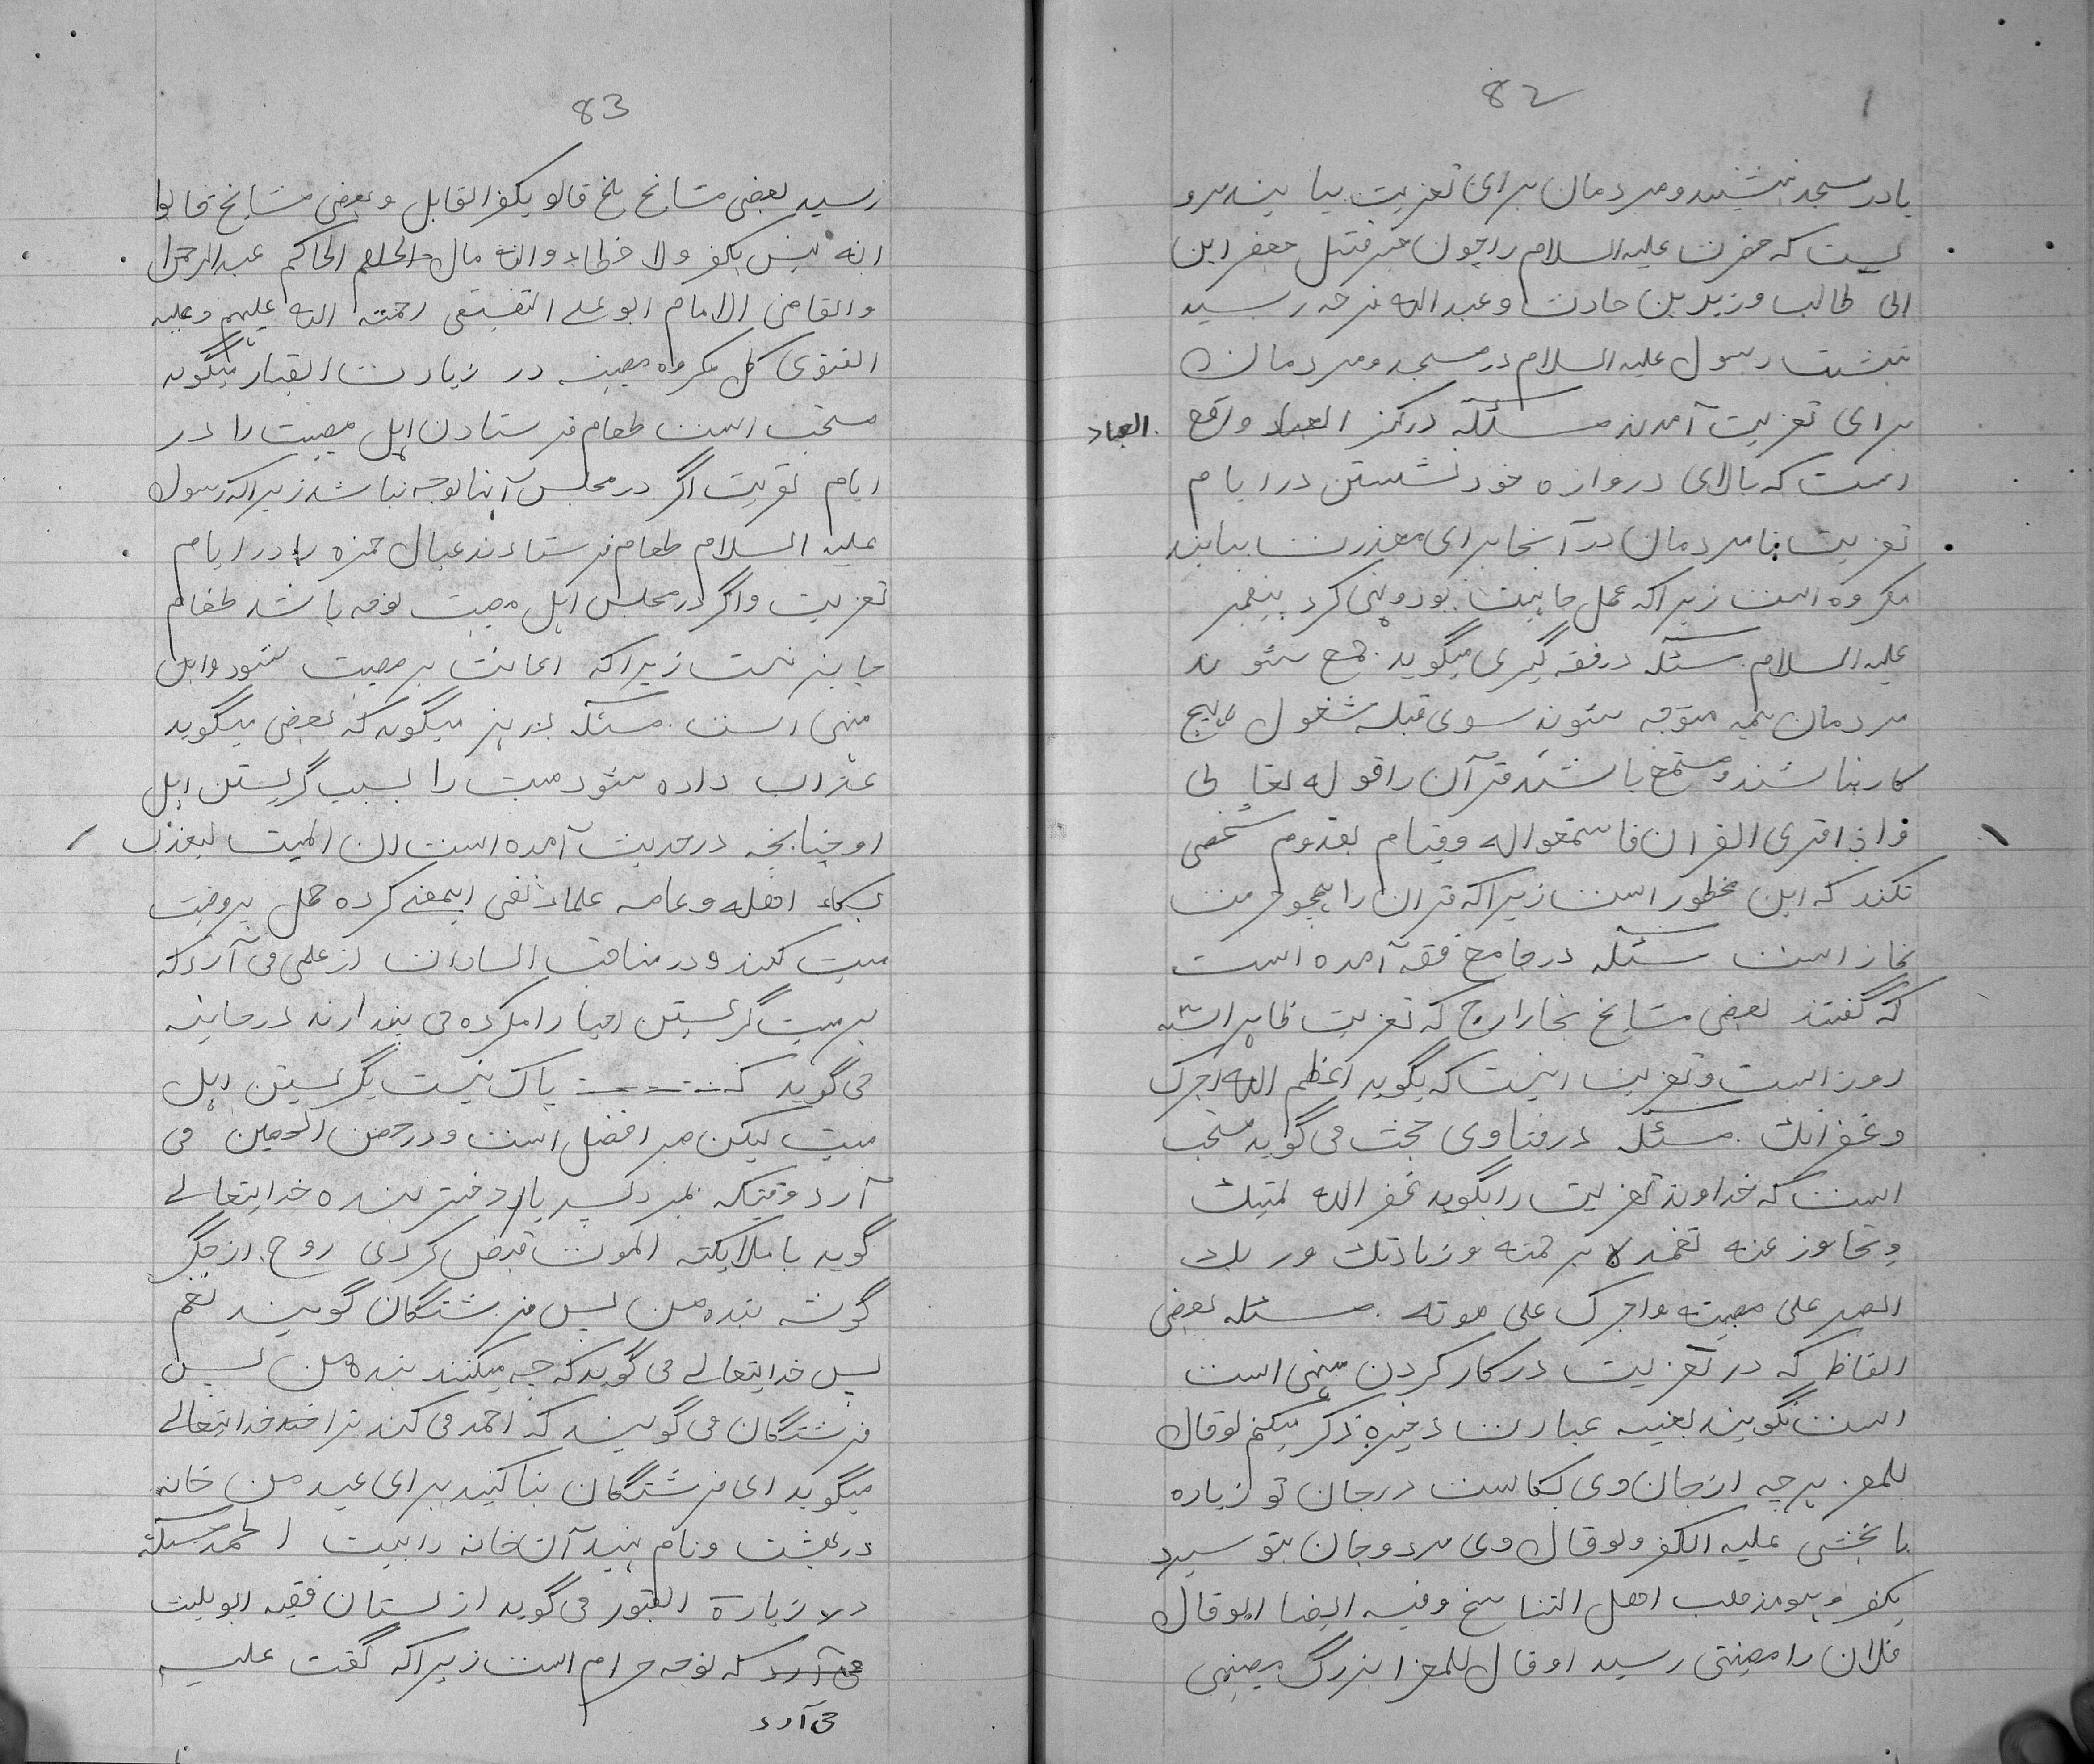 82
یا در مسجد نشینند و مردمان برای تعزیت بیایند مرو
یست که حضرت علیه السلام را چون خبر قتل جعفر ابن
ابی طالب و زید بن حادث و عبد الله رسید
نشست رسول علیه السلام در مسجد و مردمان
برای تعزیت آمدند مسئله در کنز العباد واقع العباد
است که بالای دروازه خود نشستن در ایام
تعزیت تا مردمان در آنجا برای معذرت بیایند
مکروه است زیرا که عمل جاهلیت بود و نهی کرد پیغمبر
علیه السلام. مسئله در فقه گیری میگوید جمع شوند
مردمان همه متوجه شوند سوی قبله مشغول بهیچ
کار نباشند و مستمع باشند قرآن را قوله تعالی
و اذا قری القران فاستمعوا له و قیام بقدوم شخصی
نکند که این محظور است زیرا که قران را همچو حرمت
نماز است مسئله در جامع فقه آمده است
که گفتند بعضی مشایخ بخارا رح که تعزیت ظاهر است سه
روز است و تعزیت اینست که بگوید اعظم الله اجرک
و غفرانک. مسئله در فتاوی حجت می گوید مستحب
است که خداوند تعزیت را بگوید غفر الله لمیتک
و تجاوز عنه تغمده برحمته و زیادتک و ربک
الصبر علی مصیبته و اجرک علی موته. مسئله بعضی
الفاظ که در تعزیت در کار کردن منهی است
است نگویند بعینه عبارت ذخیره ذکر میکنم لو قال
للمعز هرچه از جان وی بکاست در جان تو زیاده
با بخشی علیه الکفر و لو قال وی مرد و جان بتو سپرد
یکفر و هو مذهب اهل التناسخ و فیه ایضا لو قال
فلان را مصیبتی رسید او قال للمعزا بزرگ مصیبتی
83
رسید بعضی مشایخ بلخ قالو یکفر القایل و بعضی مشایخ قالوا
انه لیس بکفر ولا خطاء و الیه مال الحاکم عبد الرحمن
و القاضی الامام ابو علی النسفی رحمته الله علیهم و علیه
الفتوی کل مکروه مصیبه در زیارت القبار میگوید
مستحب است طعام فرستادن اهل مصیبت را در
ایام تعزیت اگر در مجلس آنها نوحه نباشد زیرا که رسول
علیه السلام طعام فرستادند عیال حمزه را در ایام
تعزیت و اگر در مجلس اهل مصیبت نوحه باشد طعام
جایز نیست زیرا که اعانت بر معصیت شود و این
منهی است. مسئله نیز میگوید که بعضی میگوید
عذاب داده شود میت را بسبب گریستن اهل
او چنانچه در حدیث آمده است ان المیت لیعذب
ببکاء اهله و عامه علماء نفی اینمعنی کرده حمل بر وصیت
میت کنند و در مناقب السادات از علمی می آرد که
بر میت گریستن احیا را مکروه می پندارند در خانیه
می گوید که باک نیست بگریستن اهل
میت لیکن صبر افضل است و در حصن الحصین می
آرد وقتیکه بمیرد پسر یا دختر بنده خدایتعالے
گوید با ملایکته الموت قبض کردی روح از جگر
گوشه بنده من پس فرشتگان گویند نعم
پس خدایتعالے می گوید که چه میکنند بنده من پس
فرشتگان می گویند که احمد می کند ترا خدایتعالے
میگوید ای فرشتگان بنا کنید برای عبد من خانه
در بهشت و نام نهید آن خانه را بیت الحمد مسئله
در زیارة القبور می گوید از بستان فقیه ابو لیث
می آرد که نوحه حرام است زیرا که گفت علیه
می آرد